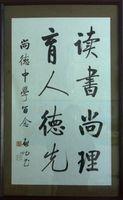 读书尚理
育人德先
尚德中學留念 启功